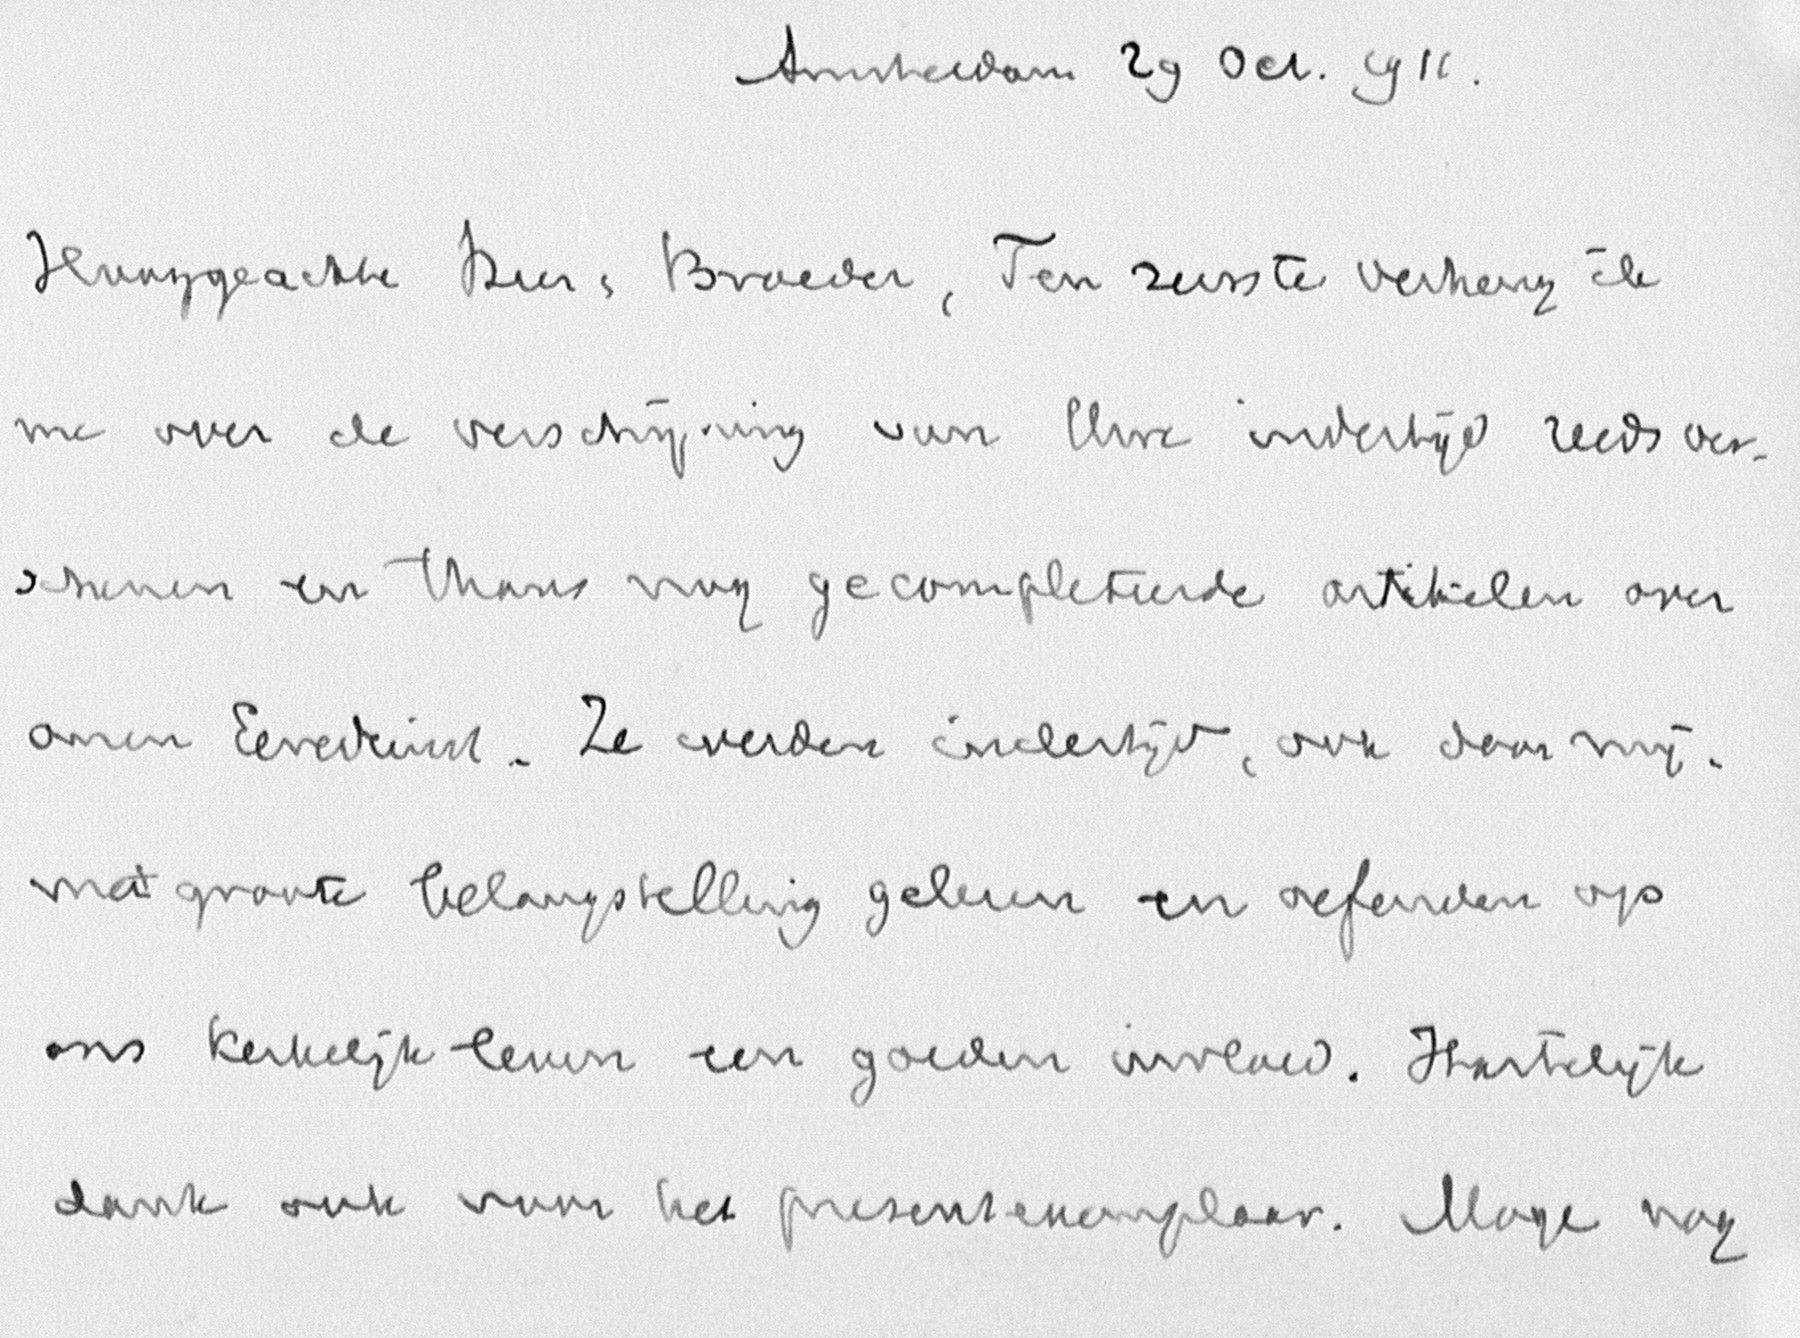 Amsterdam 29 Oct. 1911.
Hooggeachte Heer & Broeder, Ten zeerste verheug ik
me over de verschijning van Uwe indertijd reeds ver-
schenen en thans nog gecompleteerde artikelen over
onzen Eeredienst. Ze werden indertijd, ook door mij.
met groote belangstelling gelezen en oefenden op
ons kerkelijk leven een goeden invloed. Hartelijk
dank ook voor het presentexemplaar. Moge nog